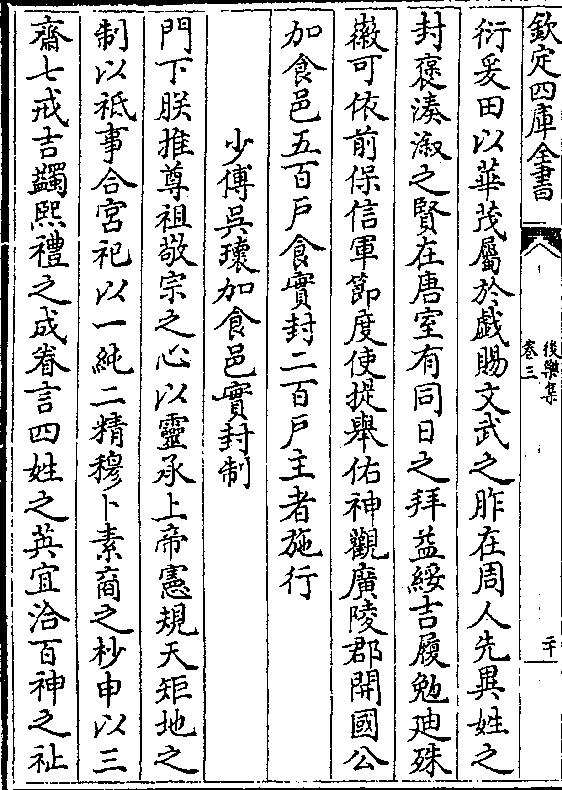 欽定四庫全書
後樂集
卷三
二十
衍爰田以華茂屬於戲賜文武之胙在周人先異姓之
封褒湊淑之賢在唐室有同日之拜益綏吉履勉迪殊
徽可依前保信軍節度使提舉佑神觀廣陵郡開國公
加食邑五百戶食實封二百戶主者施行
少傅吳瓌加食邑實封制
門下朕推尊祖敬宗之心以靈承上帝憲規天矩地之
制以祗事合宮祀以一純二精穆卜素商之杪申以三
齋七戒吉蠲熙禮之成眷言四姓之英宜洽百神之祉